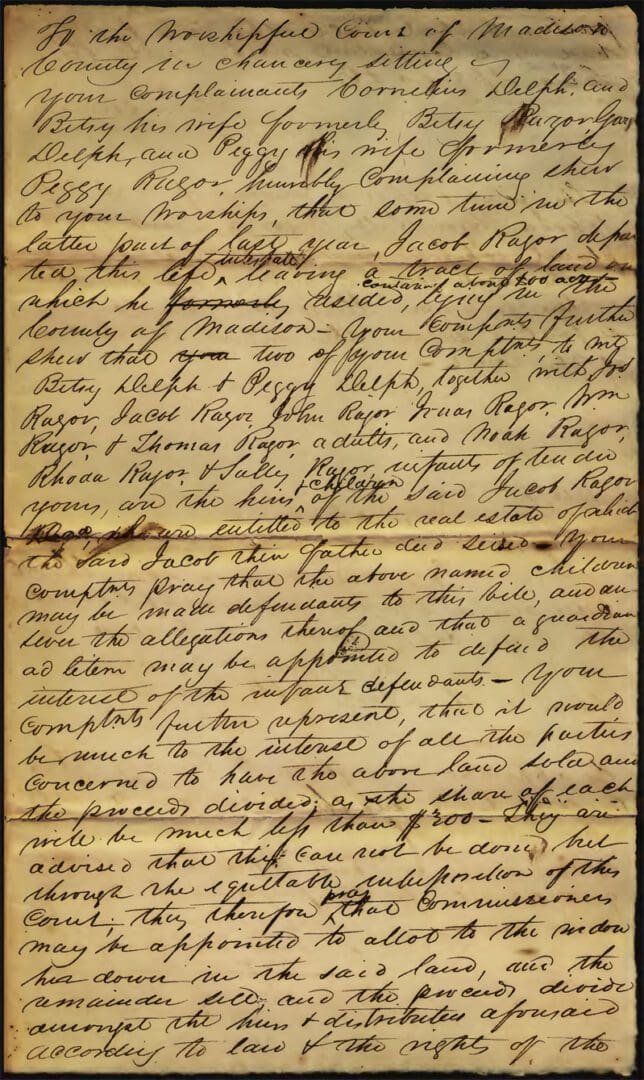 To the Worshipful Court of Madison
County in chancery sitting
your complainants Cornelius Delph, and
Betsy his wife formerly Betsy Razor,
Delph, and Peggy his wife formerly
Peggy Razor, humbly complaining shew
to your Worships, that some time in the
latter part of last year, Jacob Razor depar
ted this life intestate leaving a tract of land on
which he formerly resided, containing about 200 acres lying in the
County of Madison – Your Complts further
shew that your two of your Complts, to wit
Betsy Delph & Peggy Delph, together with Jos
Razor, Jacob Razor, John Razor Razor, Wm
Razor, & Thomas Razor, adults, and Noah Razor,
Rhoda Razor & Sally Razor, infants of tender
years, are the heirs & children of the said Jacob Razor
who are entitled to the real estate of which
the said Jacob their father died seised – Your
complnts pray that the above named children
may be made defendants to this bill, and an
swer the allegations thereof and that a guardian
ad litem may be appointed to defend the
interest of the infant defendants. – Your
Complnts further represent, that it would
be much to the interest of all the parties
concerned to have the above land sold and
the proceeds divided; as the share of each
will be much less than $300 – They are
advised that this can not be done, but
through the equitable interposition of this
Court; they therefore pray that Commissioners
may be appointed to allot to the widow
her dower in the said land, and the
remainder sell, and the proceeds divide
amongst the heirs & distributees aforesaid
according to law & the rights of the